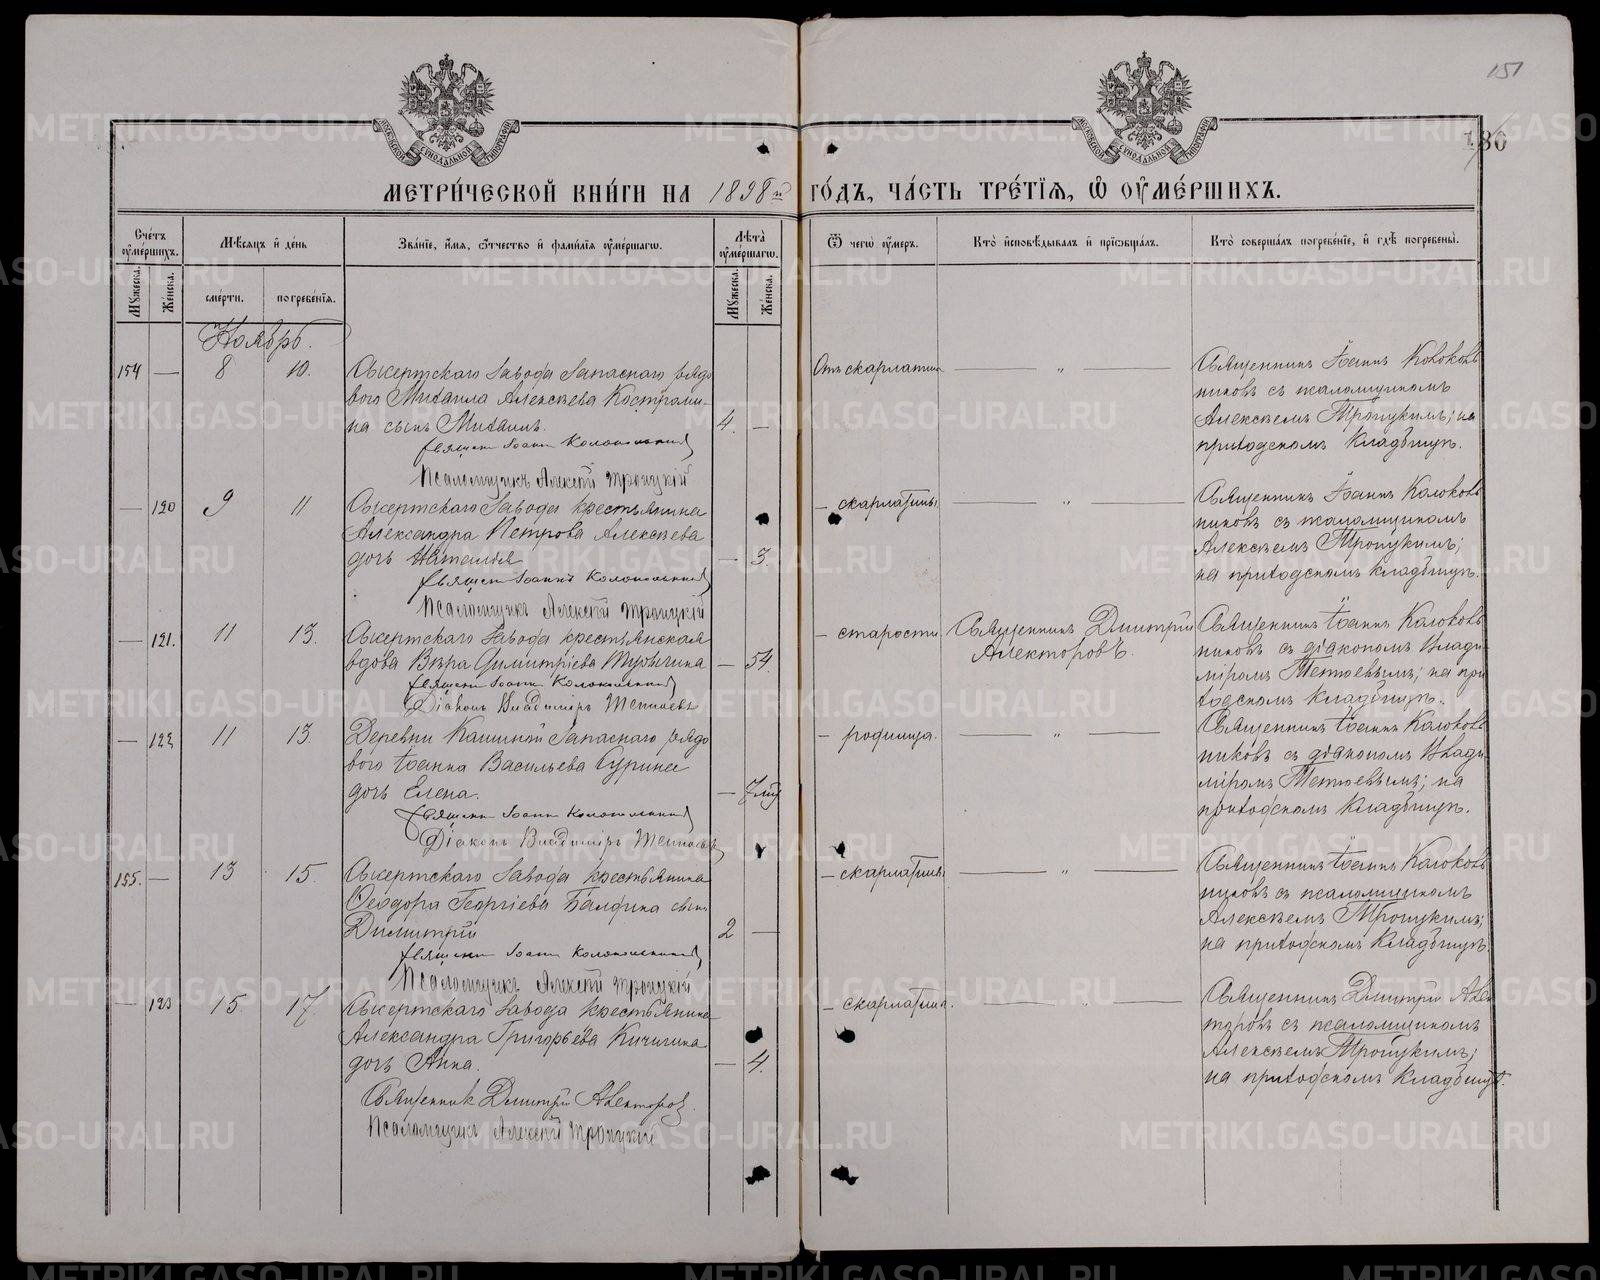 151
180
МЕТРИ́ЧЕСКОЙ КНИ́ГИ НА 1898й ГО́ДЪ, ЧА́СТЬ ТРЕ́ТІЯ, Ѽ ОУ҆МЕ́РШИХЪ.
Счетъ оумершихъ.
Мужеска.
Женска.
Мѣсяцъ и день
смерти.
погребенія.
Званіе, имя, отчество и фамилія оумершагѡ.
Лѣта оумершагѡ.
Мужеска.
Женска.
Ѿ чегѡ оумеръ.
Кто исповѣдывалъ и пріобщалъ.
Кто совершалъ погребеніе, и гдѣ погребены.
Ноябрь.
154 — 8 10.
Сысертскаго завода запаснаго рядо
вого Михаила Алексѣева Костроми-
на сынъ Михаилъ. 4. —
Священ. Іоаннъ Колокольниковъ
Псаломщикъ Алексій Троицкій
Отъ скарлатины
— „ —
Священникъ Іоаннъ Колоколь
никовъ съ псаломщикомъ
Алексѣемъ Троицкимъ; на
приходскомъ кладбищѣ.
— 120 9 11
Сысертскаго завода крестьянина
Александра Петрова Алексѣева
дочь Наталія — 3.
Священ. Іоаннъ Колокольниковъ
Псаломщикъ Алексій Троицкій
— скарлатины
— „ —
Священникъ Іоаннъ Колоколь
никовъ съ псаломщикомъ
Алексѣемъ Троицкимъ;
на приходскомъ кладбищѣ.
— 121. 11 13.
Сысертскаго завода крестьянская
вдова Вѣра Димитріева — 54.
Священ. Іоаннъ Колокольниковъ
Діаконъ Владиміръ
— старости.
Священникъ Дмитрій
Алекторовъ.
Священникъ Іоаннъ Колоколь
никовъ съ діакономъ Влади
міромъ; на при
ходскомъ кладбищѣ.
— 122 11 13.
Деревни Кашиной запаснаго рядо
вого Іоанна Васильева Сурина
дочь Елена. — 7 мц
Священ. Іоаннъ Колокольниковъ
Діаконъ Владиміръ
— родимца.
— „ —
Священникъ Іоаннъ Колоколь
никовъ съ діакономъ Влади
міромъ; на
приходскомъ кладбищѣ.
155. — 13 15.
Сысертскаго завода крестьянина
Ѳеодора Георгіева Балдина сынъ
Димитрій 2 —
Священ. Іоаннъ Колокольниковъ
Псаломщикъ Алексій Троицкій
— скарлатины
— „ —
Священникъ Іоаннъ Колоколь
никовъ съ псаломщикомъ
Алексѣемъ Троицкимъ;
на приходскомъ кладбищѣ.
— 123 15. 17.
Сысертскаго завода крестьянина
Александра Григорьева Кичигина
дочь Анна. — 4.
Священникъ Дмитрій Алекторовъ.
Псаломщикъ Алексій Троицкій
— скарлатина.
— „ —
Священникъ Дмитрій Алек
торовъ съ псаломщикомъ
Алексѣемъ Троицкимъ;
на приходскомъ кладбищѣ.
METRIKI.GASO-URAL.RU